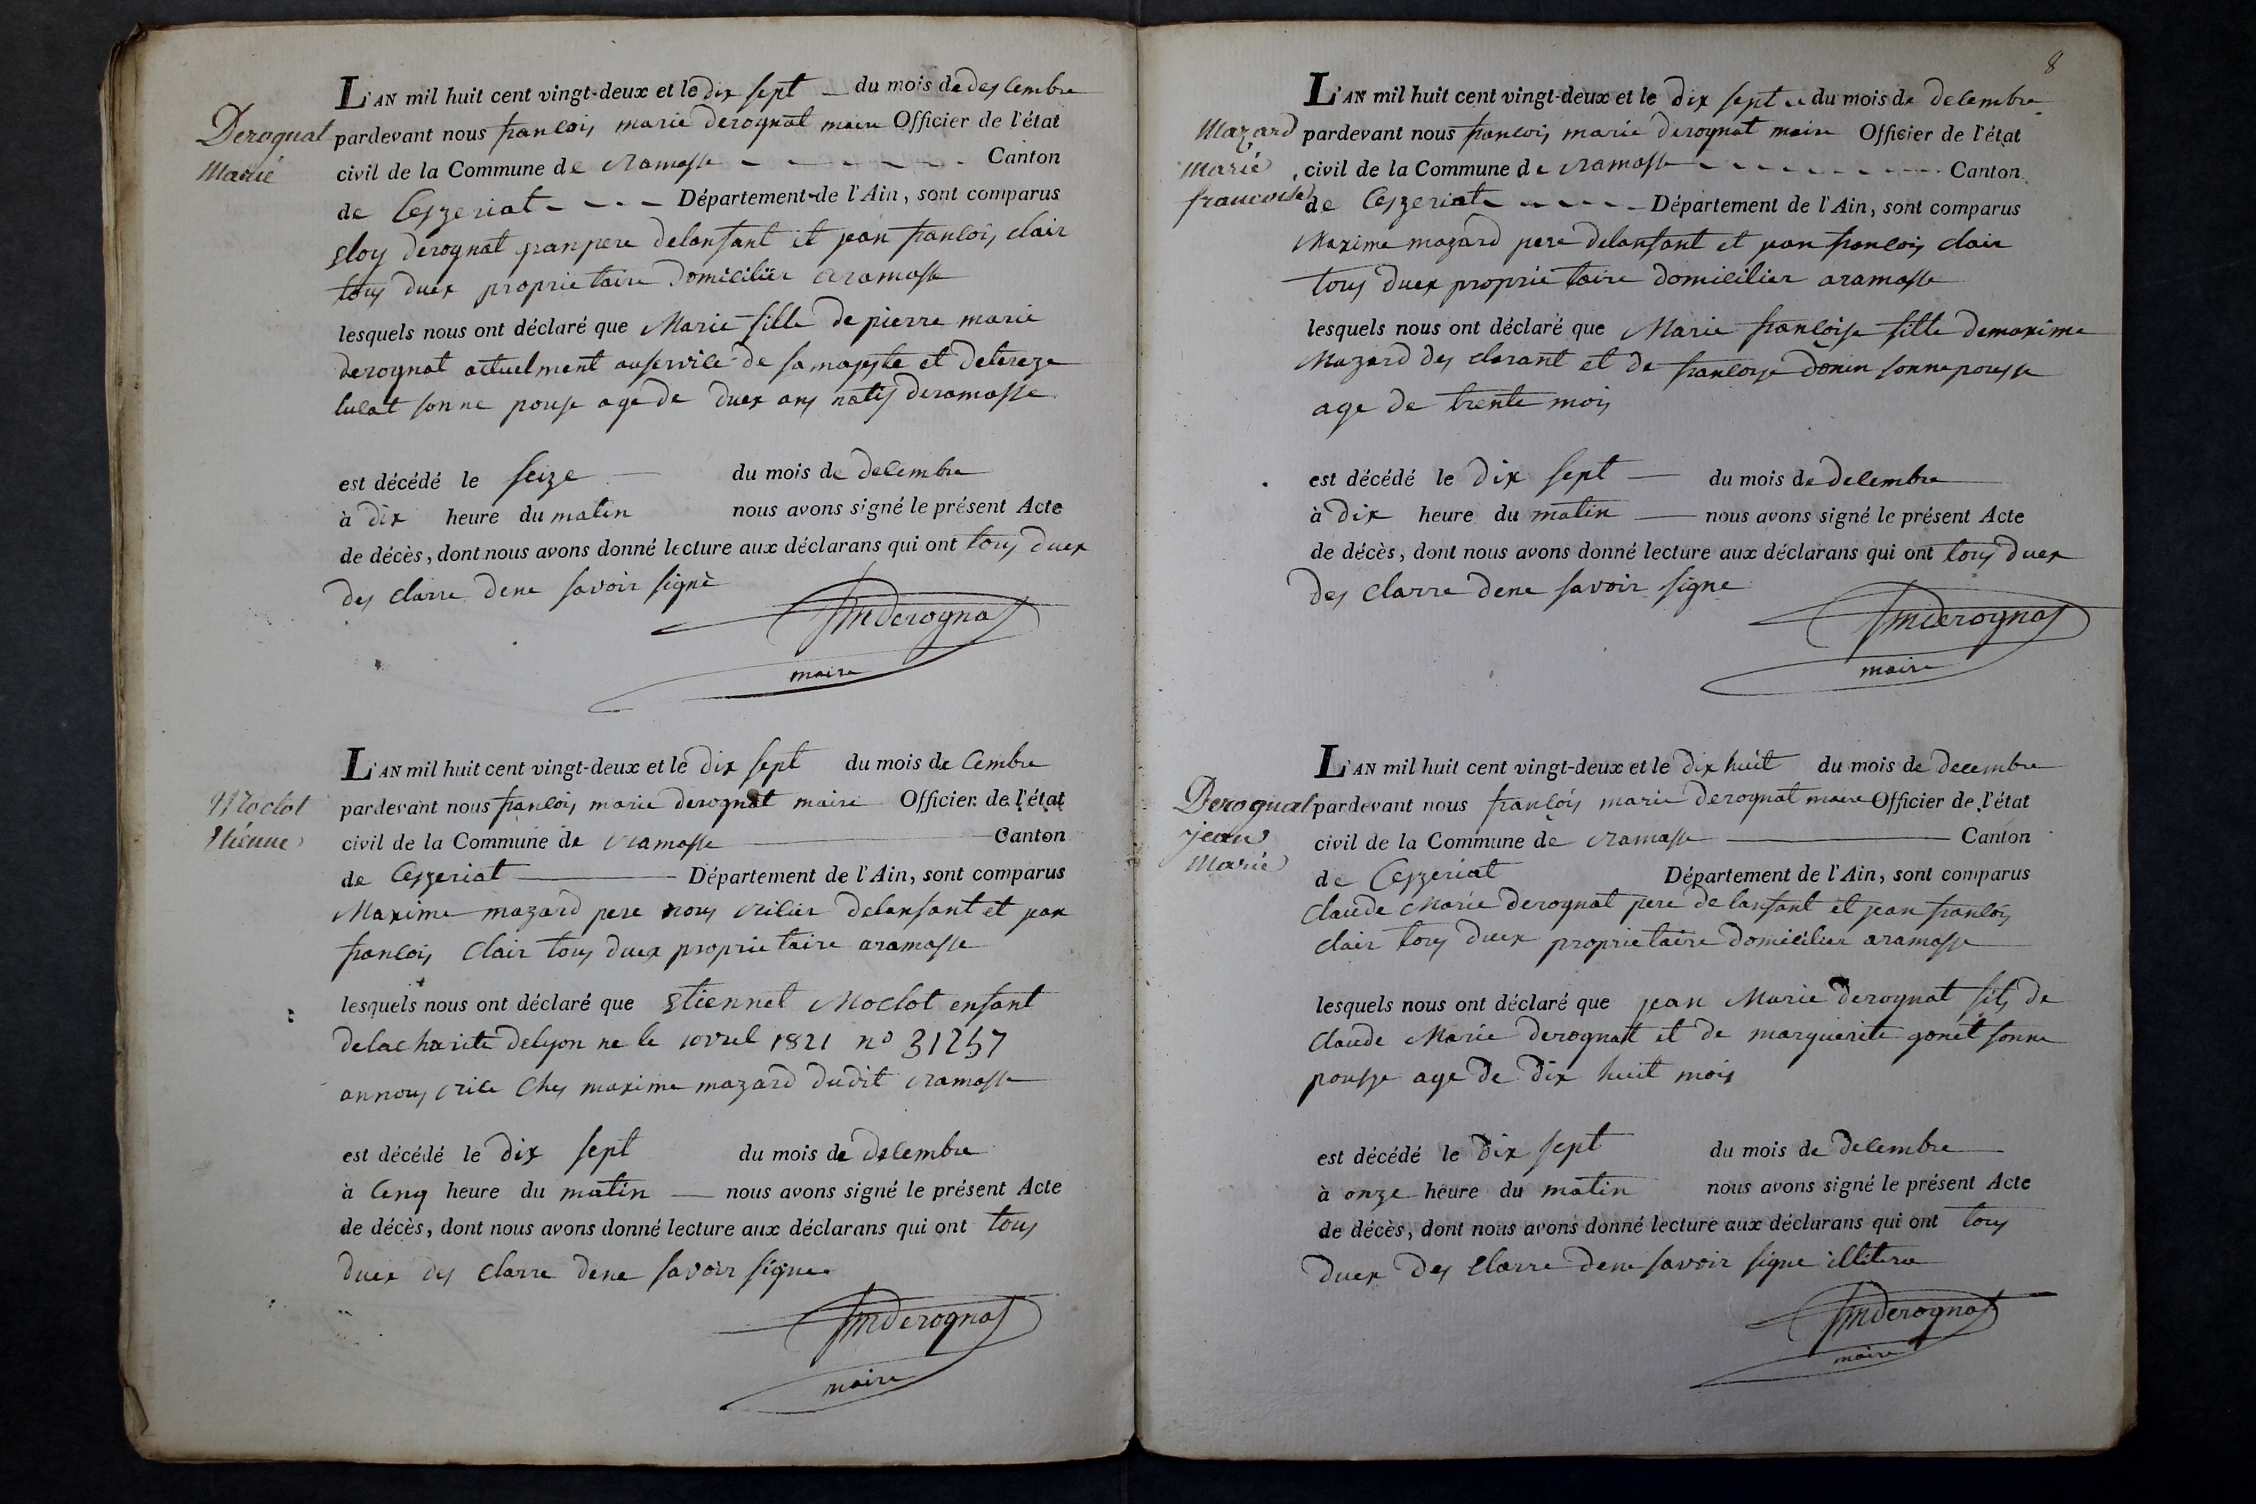 Derognat
Marie
L'AN mil huit cent vingt-deux et le dix sept du mois de des cembre
pardevant nous francois marie derognat maire Officier de l'état
civil de la Commune de ramasse Canton
de Ceyzeriat Département de l'Ain, sont comparus
Eloy derognat granpere delansant et jean francois clair
tous duex proprietaire domicilier aramasse
lesquels nous ont déclaré que Marie fille de pierre marie
derognat actuelment auservice de samajeste et detereze
lucat sonne pouse age de duex ans natif deramasse
est décédé le seize du mois de decembre
à dix heure du matin nous avons signé le présent Acte
de décès, dont nous avons donné lecture aux déclarans qui ont tous duex
des clarre dene savoir signe
fmderognat
maire
Moclot
Etienne
L'AN mil huit cent vingt-deux et le dix sept du mois de cembre
pardevant nous francois marie derognat maire Officier de l'état
civil de la Commune de ramasse Canton
de Ceyzeriat Département de l'Ain, sont comparus
Maxime mazard pere nous ricier delansant et jean
francois Clair tous duex proprietaire aramasse
lesquels nous ont déclaré que Etiennet Moclot enfant
delacharite delyon ne le avril 1821 no 31257
annous rice ches maxime mazard dudit ramasse
est décédé le dix sept du mois de decembre
à cenq heure du matin nous avons signé le présent Acte
de décès, dont nous avons donné lecture aux déclarans qui ont tous
duex des clarre dene savoir signe
fmderognat
maire
8
Mazard
marie
francoise
L'AN mil huit cent vingt-deux et le dix sept du mois de decembre
pardevant nous francois marie derognat maire Officier de l'état
civil de la Commune de ramasse Canton
de Ceyzeriat Département de l'Ain, sont comparus
Maxime mazard pere delansant et jean francois clair
tous duex proprietaire domicilier aramasse
lesquels nous ont déclaré que Marie francoise fille demaxime
Mazard des clarant et de francoise donin sonnepousse
age de trente mois
est décédé le dix sept du mois de decembre
à dix heure du matin nous avons signé le présent Acte
de décès, dont nous avons donné lecture aux déclarans qui ont tous duex
des clarre dene savoir signe
fmderognat
maire
Derognat
jean
Marie
L'AN mil huit cent vingt-deux et le dix huit du mois de decembre
pardevant nous francois marie derognat maire Officier de l'état
civil de la Commune de ramasse Canton
de Ceyzeriat Département de l'Ain, sont comparus
Claude Marie derognat pere de lansant et jean francois
clair tous duex proprietaire domicilier aramasse
lesquels nous ont déclaré que jean Marie derognat fils de
claude Marie derognat et de marguerite gonet sonne
pousse age de dix huit mois
est décédé le dix sept du mois de decembre
à onze heure du matin nous avons signé le présent Acte
de décès, dont nous avons donné lecture aux déclarans qui ont tous
duex des clarre dene savoir signe illitere
fmderognat
maire